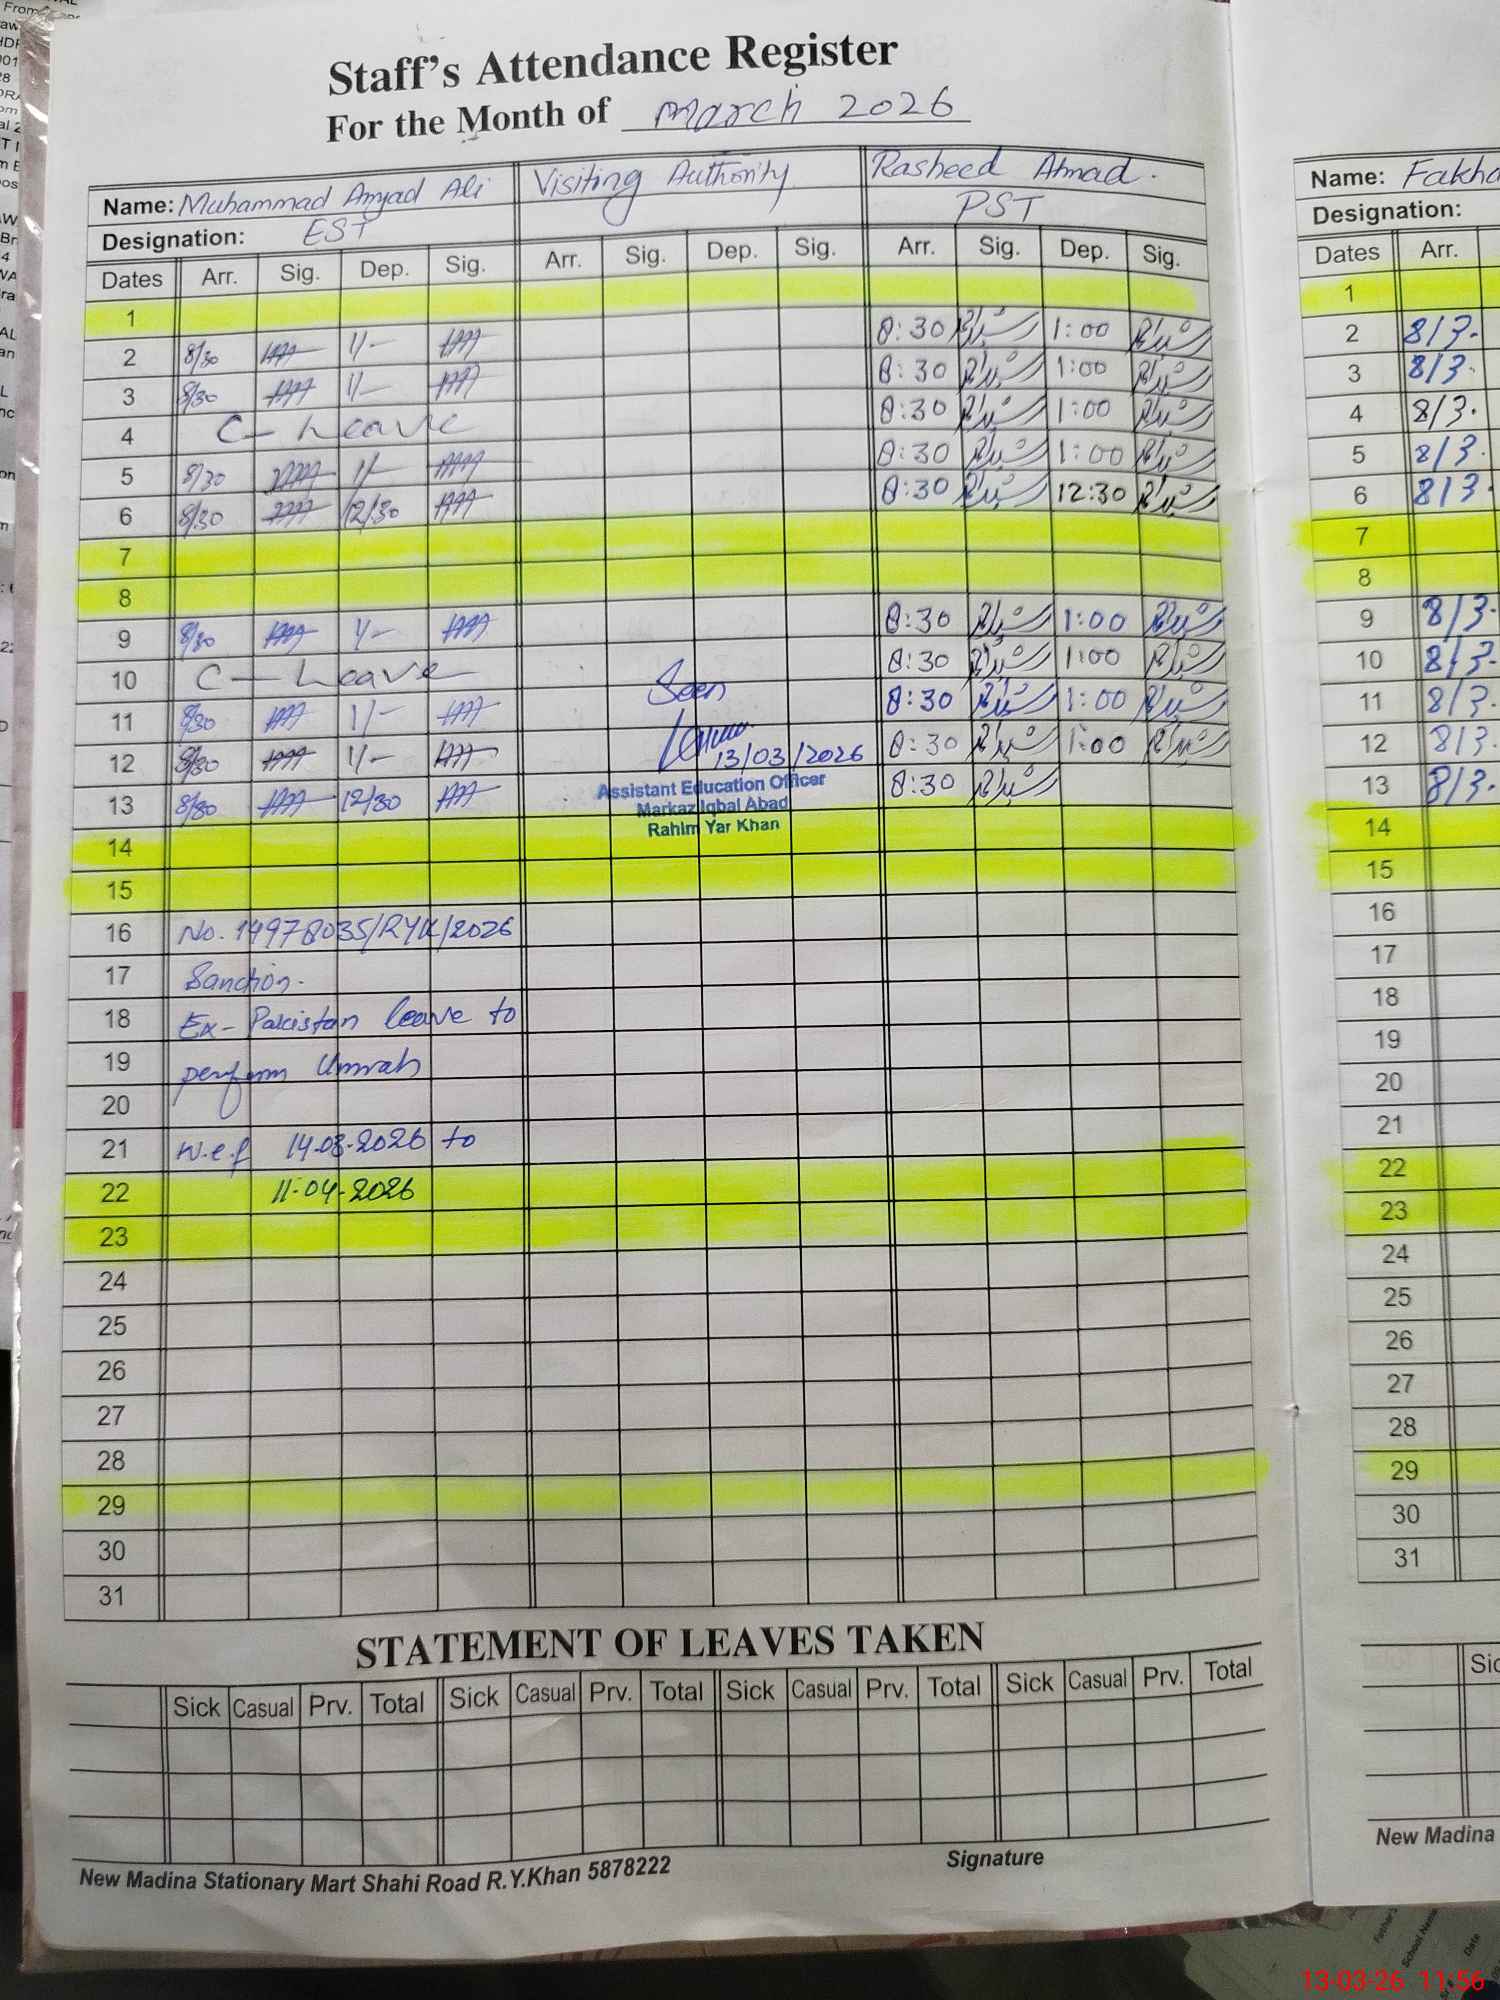 Staff's Attendance Register
For the Month of March 2026
Name: Muhammad Amjad Ali Visiting Authority Rasheed Ahmad.
Designation: EST PST
Dates Arr. Sig. Dep. Sig. Arr. Sig. Dep. Sig. Arr. Sig. Dep. Sig.
1
2 8/30 1/- 8:30 1:00
3 8/30 1/- 8:30 1:00
4 C- Leave 8:30 1:00
5 8/30 1/- 8:30 1:00
6 8/30 12/30 8:30 12:30
7
8
9 8/30 1/- 8:30 1:00
10 C- Leave Seen 8:30 1:00
11 8/30 1/- 8:30 1:00
12 8/30 1/- 13/03/2026 8:30 1:00
13 8/30 12/30 8:30
Assistant Education Officer
Markaz Iqbal Abad
Rahim Yar Khan
14
15
16 No. 14978035/RYK/2026
17 Sanction.
18 Ex- Pakistan leave to
19 perform Umrah
20
21 w.e.f 14-03-2026 to
22 11-04-2026
23
24
25
26
27
28
29
30
31
STATEMENT OF LEAVES TAKEN
Sick Casual Prv. Total Sick Casual Prv. Total Sick Casual Prv. Total Sick Casual Prv. Total
New Madina Stationary Mart Shahi Road R.Y.Khan 5878222 Signature
Name: Fakha
Designation:
Dates Arr.
1
2 8/3.
3 8/3.
4 8/3.
5 8/3.
6 8/3.
7
8
9 8/3.
10 8/3.
11 8/3.
12 8/3.
13 8/3.
14
15
16
17
18
19
20
21
22
23
24
25
26
27
28
29
30
31
Sic
New Madina
13-03-26 11:56